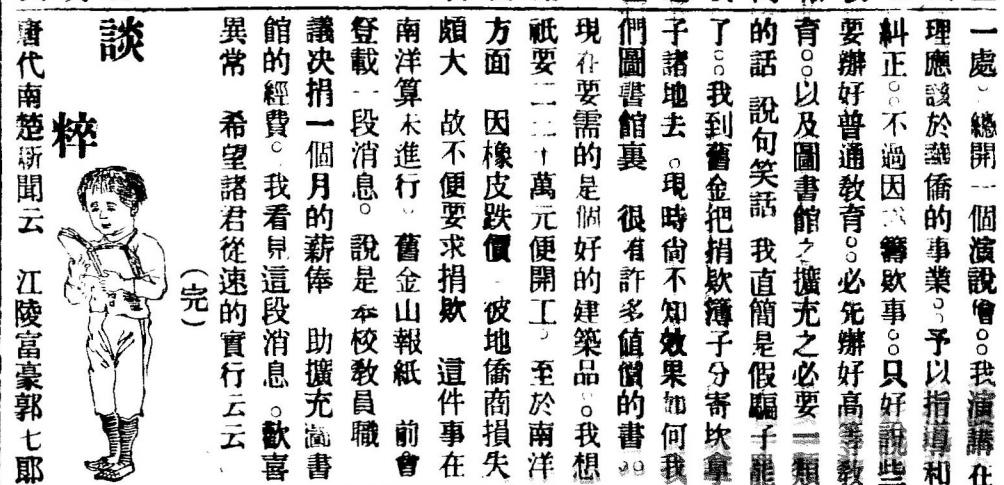 一處。總開一個演說會。。我演講在
理應該於華僑的事業。予以指導和
糾正。。不過因 籌欵事。。只好說些
要辦好普通教育。。必先辦好高等教
育。。以及圖書館之擴充之必要一類
的話 說句笑話 我直簡是假騙子
了。。我到舊金把捐欵簿子分寄坎拿
子諸地去。現時尙不知效果如何我
們圖書館裏 很有許多值價的書。。
現在要需的是個好的建築品。。我想
祇要二三十萬元便開工。至於南洋
方面 因橡皮跌價 彼地僑商損失
頗大 故不便要求捐欵 這件事在
南洋算未進行。舊金山報紙 前會
登載一段消息。說是本校教員職
議决捐一個月的薪俸 助擴充圖書
館的經費。我看見這段消息。歡喜
異常 希望諸君從速的實行云云
(完)
談粹
唐代南楚新聞云 江陵富豪郭七郎